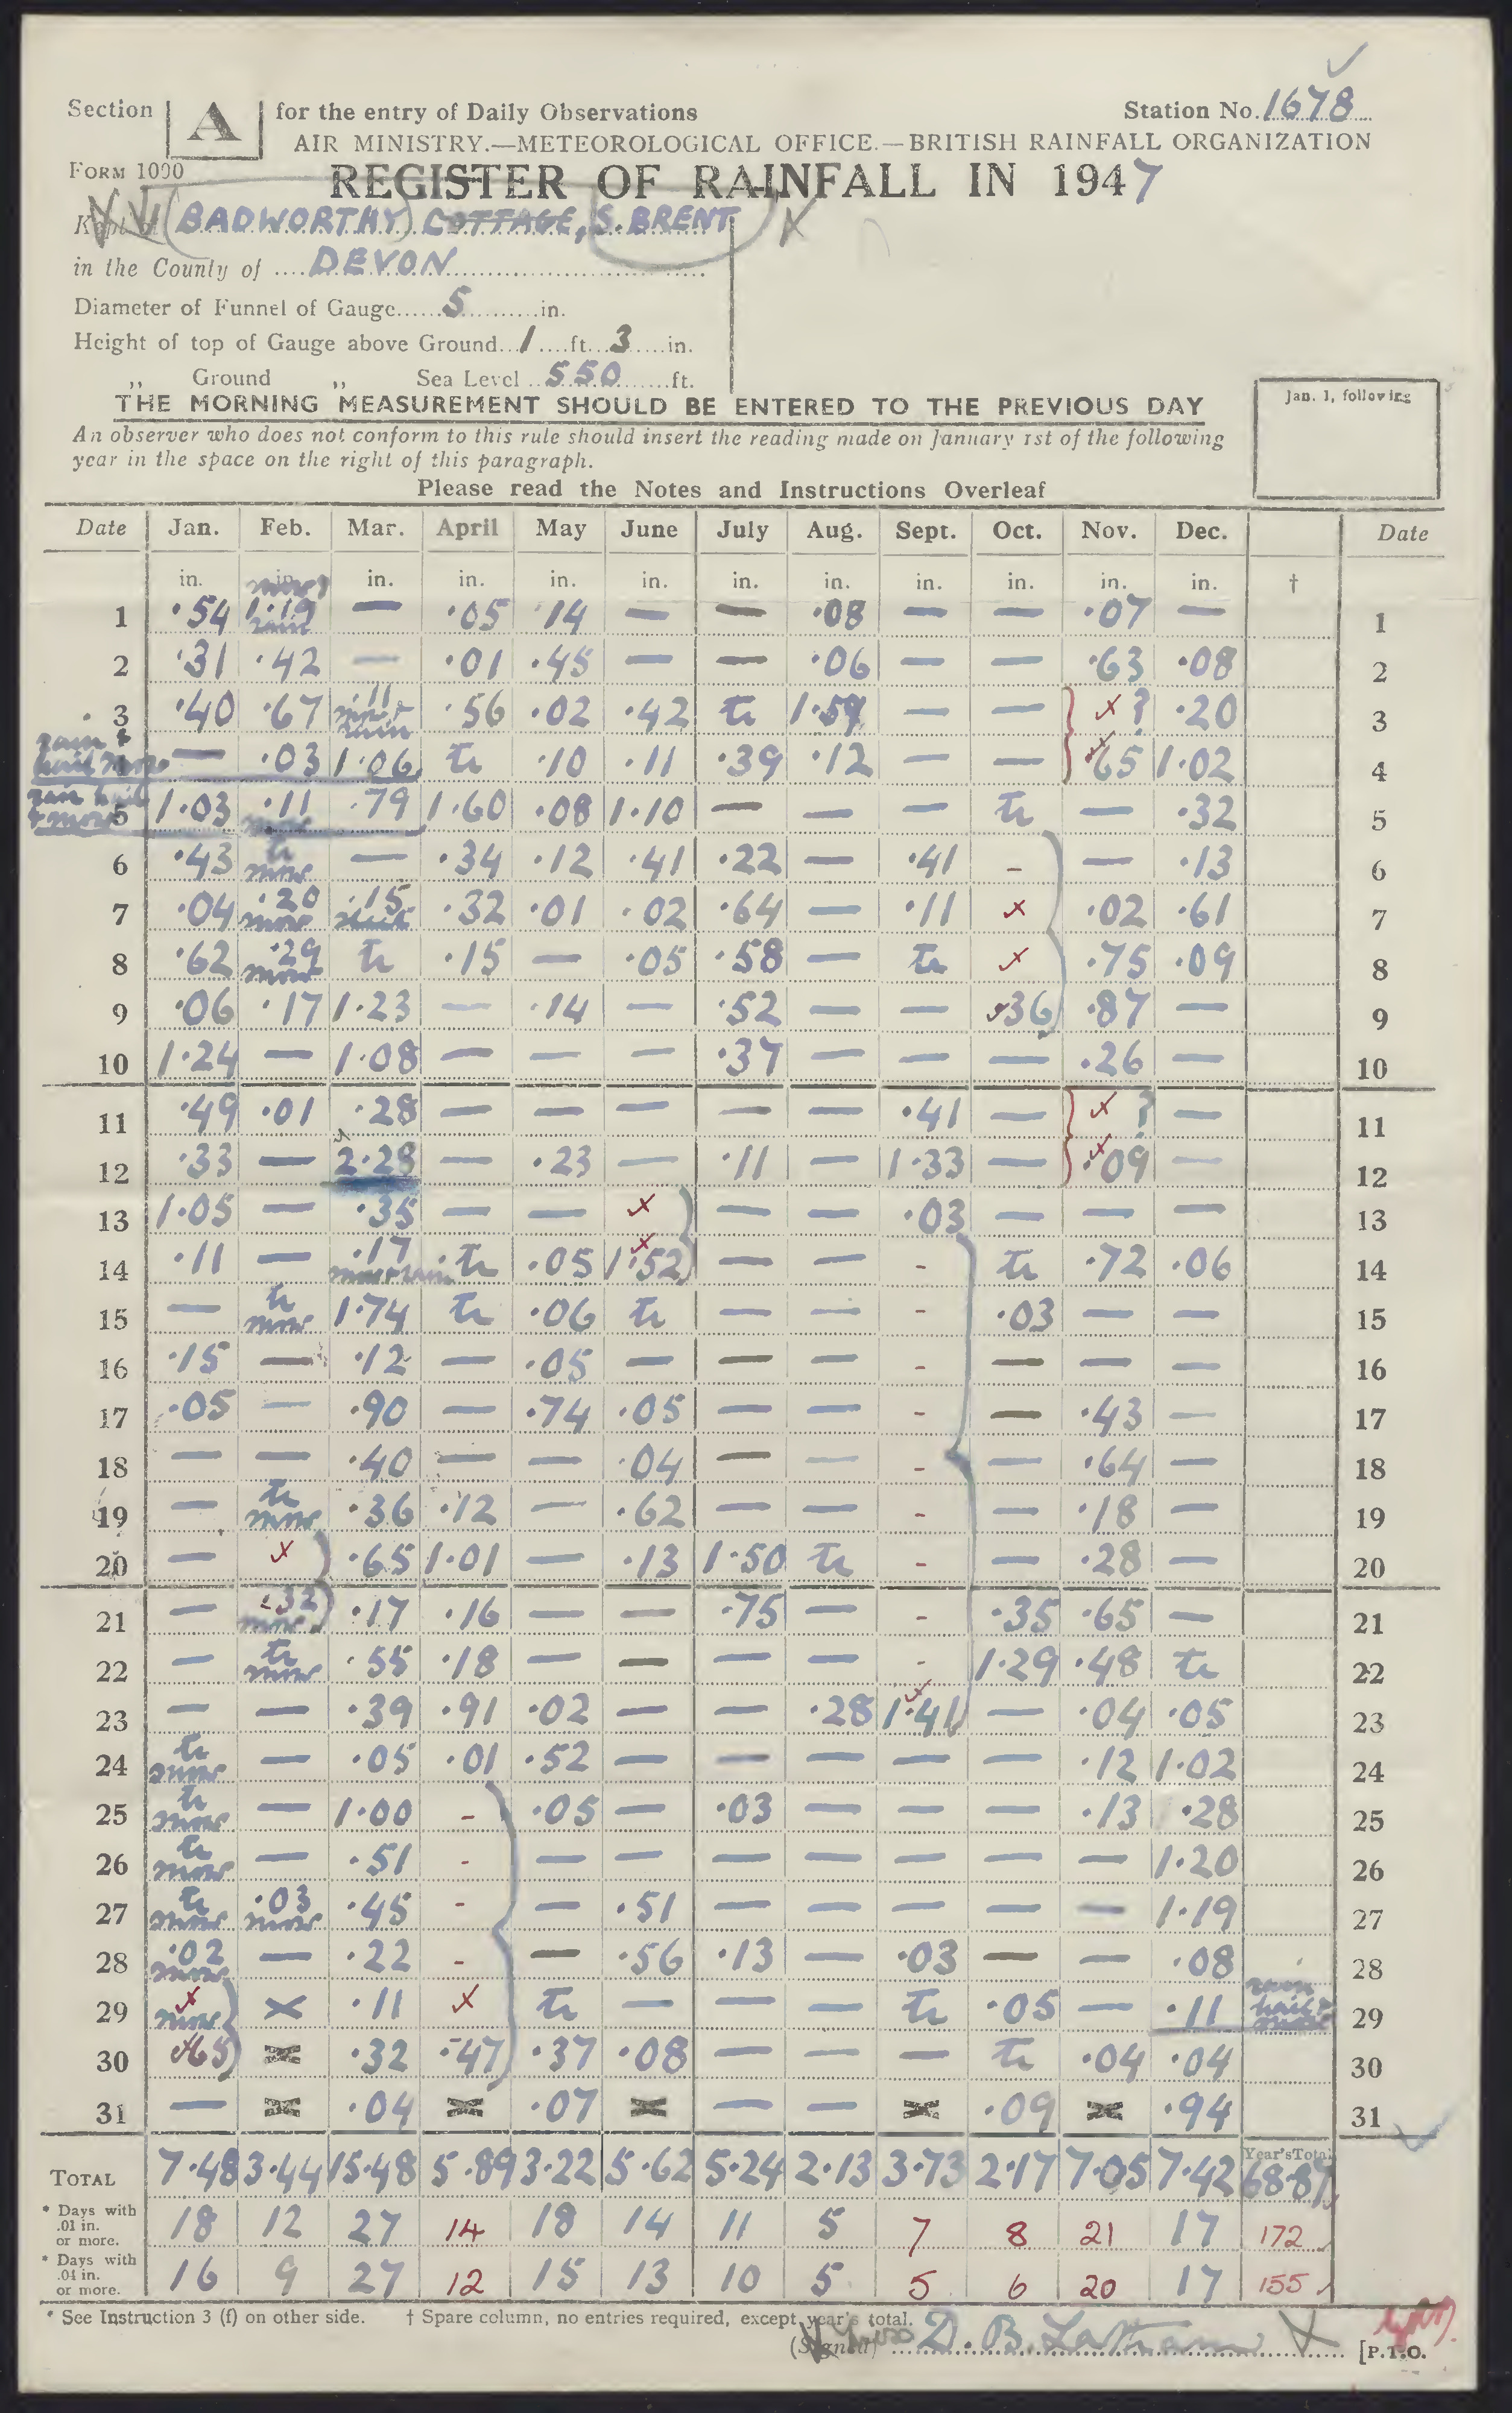 Section A for the entry of Daily Observations Station No. 1678
AIR MINISTRY.—METEOROLOGICAL OFFICE.—BRITISH RAINFALL ORGANIZATION
FORM 1090
REGISTER OF RAINFALL IN 1947
Kept at BADWORTHY COTTAGE, S. BRENT
in the County of DEVON
Diameter of Funnel of Gauge 5 in.
Height of top of Gauge above Ground 1 ft. 3 in.
,, Ground ,, Sea Level 550 ft.
THE MORNING MEASUREMENT SHOULD BE ENTERED TO THE PREVIOUS DAY
Jan. 1, following
An observer who does not conform to this rule should insert the reading made on January 1st of the following
year in the space on the right of this paragraph.
Please read the Notes and Instructions Overleaf
Date Jan. Feb. Mar. April May June July Aug. Sept. Oct. Nov. Dec. Date
in. in. in. in. in. in. in. in. in. in. in. in. †
1 .54 snow 1.19 rain — .05 .14 — — .08 — — .07 — 1
2 .31 .42 — .01 .45 — — .06 — — .63 .08 2
3 .40 .67 .11 snow & rain .56 .02 .42 tr 1.59 — — x ? .20 3
rain & hail snow 4 — .03 1.06 tr .10 .11 .39 .12 — — .65 1.02 4
rain hail & snow 5 1.03 .11 snow .79 1.60 .08 1.10 — — — tr — .32 5
6 .43 tr snow — .34 .12 .41 .22 — .41 - — .13 6
7 .04 .20 snow .15 sleet .32 .01 .02 .64 — .11 x .02 .61 7
8 .62 .29 snow tr .15 — .05 .58 — tr x .75 .09 8
9 .06 .17 1.23 — .14 — .52 — — .36 .87 — 9
10 1.24 — 1.08 — — — .37 — — — .26 — 10
11 .49 .01 .28 — — — — — .41 — x ? — 11
12 .33 — 2.28 — .23 — .11 — 1.33 — .09 — 12
13 1.05 — .35 — — x — — .03 — — — 13
14 .11 — .17 snow rain tr .05 1.52 — — - tr .72 .06 14
15 — tr snow 1.74 tr .06 tr — — - .03 — — 15
16 .15 — .12 — .05 — — — - — — — 16
17 .05 — .90 — .74 .05 — — - — .43 — 17
18 — — .40 — — .04 — — - — .64 — 18
19 — tr snow .36 .12 — .62 — — - — .18 — 19
20 — x .65 1.01 — .13 1.50 tr - — .28 — 20
21 — .32 snow .17 .16 — — .75 — - .35 .65 — 21
22 — tr snow .55 .18 — — — — - 1.29 .48 tr 22
23 — — .39 .91 .02 — — .28 1.41 — .04 .05 23
24 tr snow — .05 .01 .52 — — — — — .12 1.02 24
25 tr snow — 1.00 - .05 — .03 — — — .13 .28 25
26 tr snow — .51 - — — — — — — — 1.20 26
27 tr snow .03 snow .45 - — .51 — — — — — 1.19 27
28 .02 snow — .22 - — .56 .13 — .03 — — .08 28
29 x snow x .11 x tr — — — tr .05 — .11 rain hail & snow 29
30 .65 x .32 .47 .37 .08 — — — tr .04 .04 30
31 — x .04 x .07 x — — x .09 x .94 31
TOTAL 7.48 3.44 15.48 5.89 3.22 5.62 5.24 2.13 3.73 2.17 7.05 7.42 Year's Total 68.87
* Days with .01 in. or more. 18 12 27 14 18 14 11 5 7 8 21 17 172
* Days with .04 in. or more. 16 9 27 12 15 13 10 5 5 6 20 17 155
* See Instruction 3 (f) on other side. † Spare column, no entries required, except year's total.
(Signed) D. B. Latham [P.T.O.